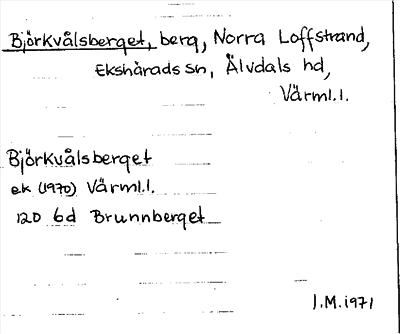 Björkvålsberget, berg, Norra Loffstrand,
Ekshärads sn, Älvdals hd,
Värml.l.
Björkvålsberget
ek (1970) Värml.l.
12D 6d Brunnberget
J.M. 1971